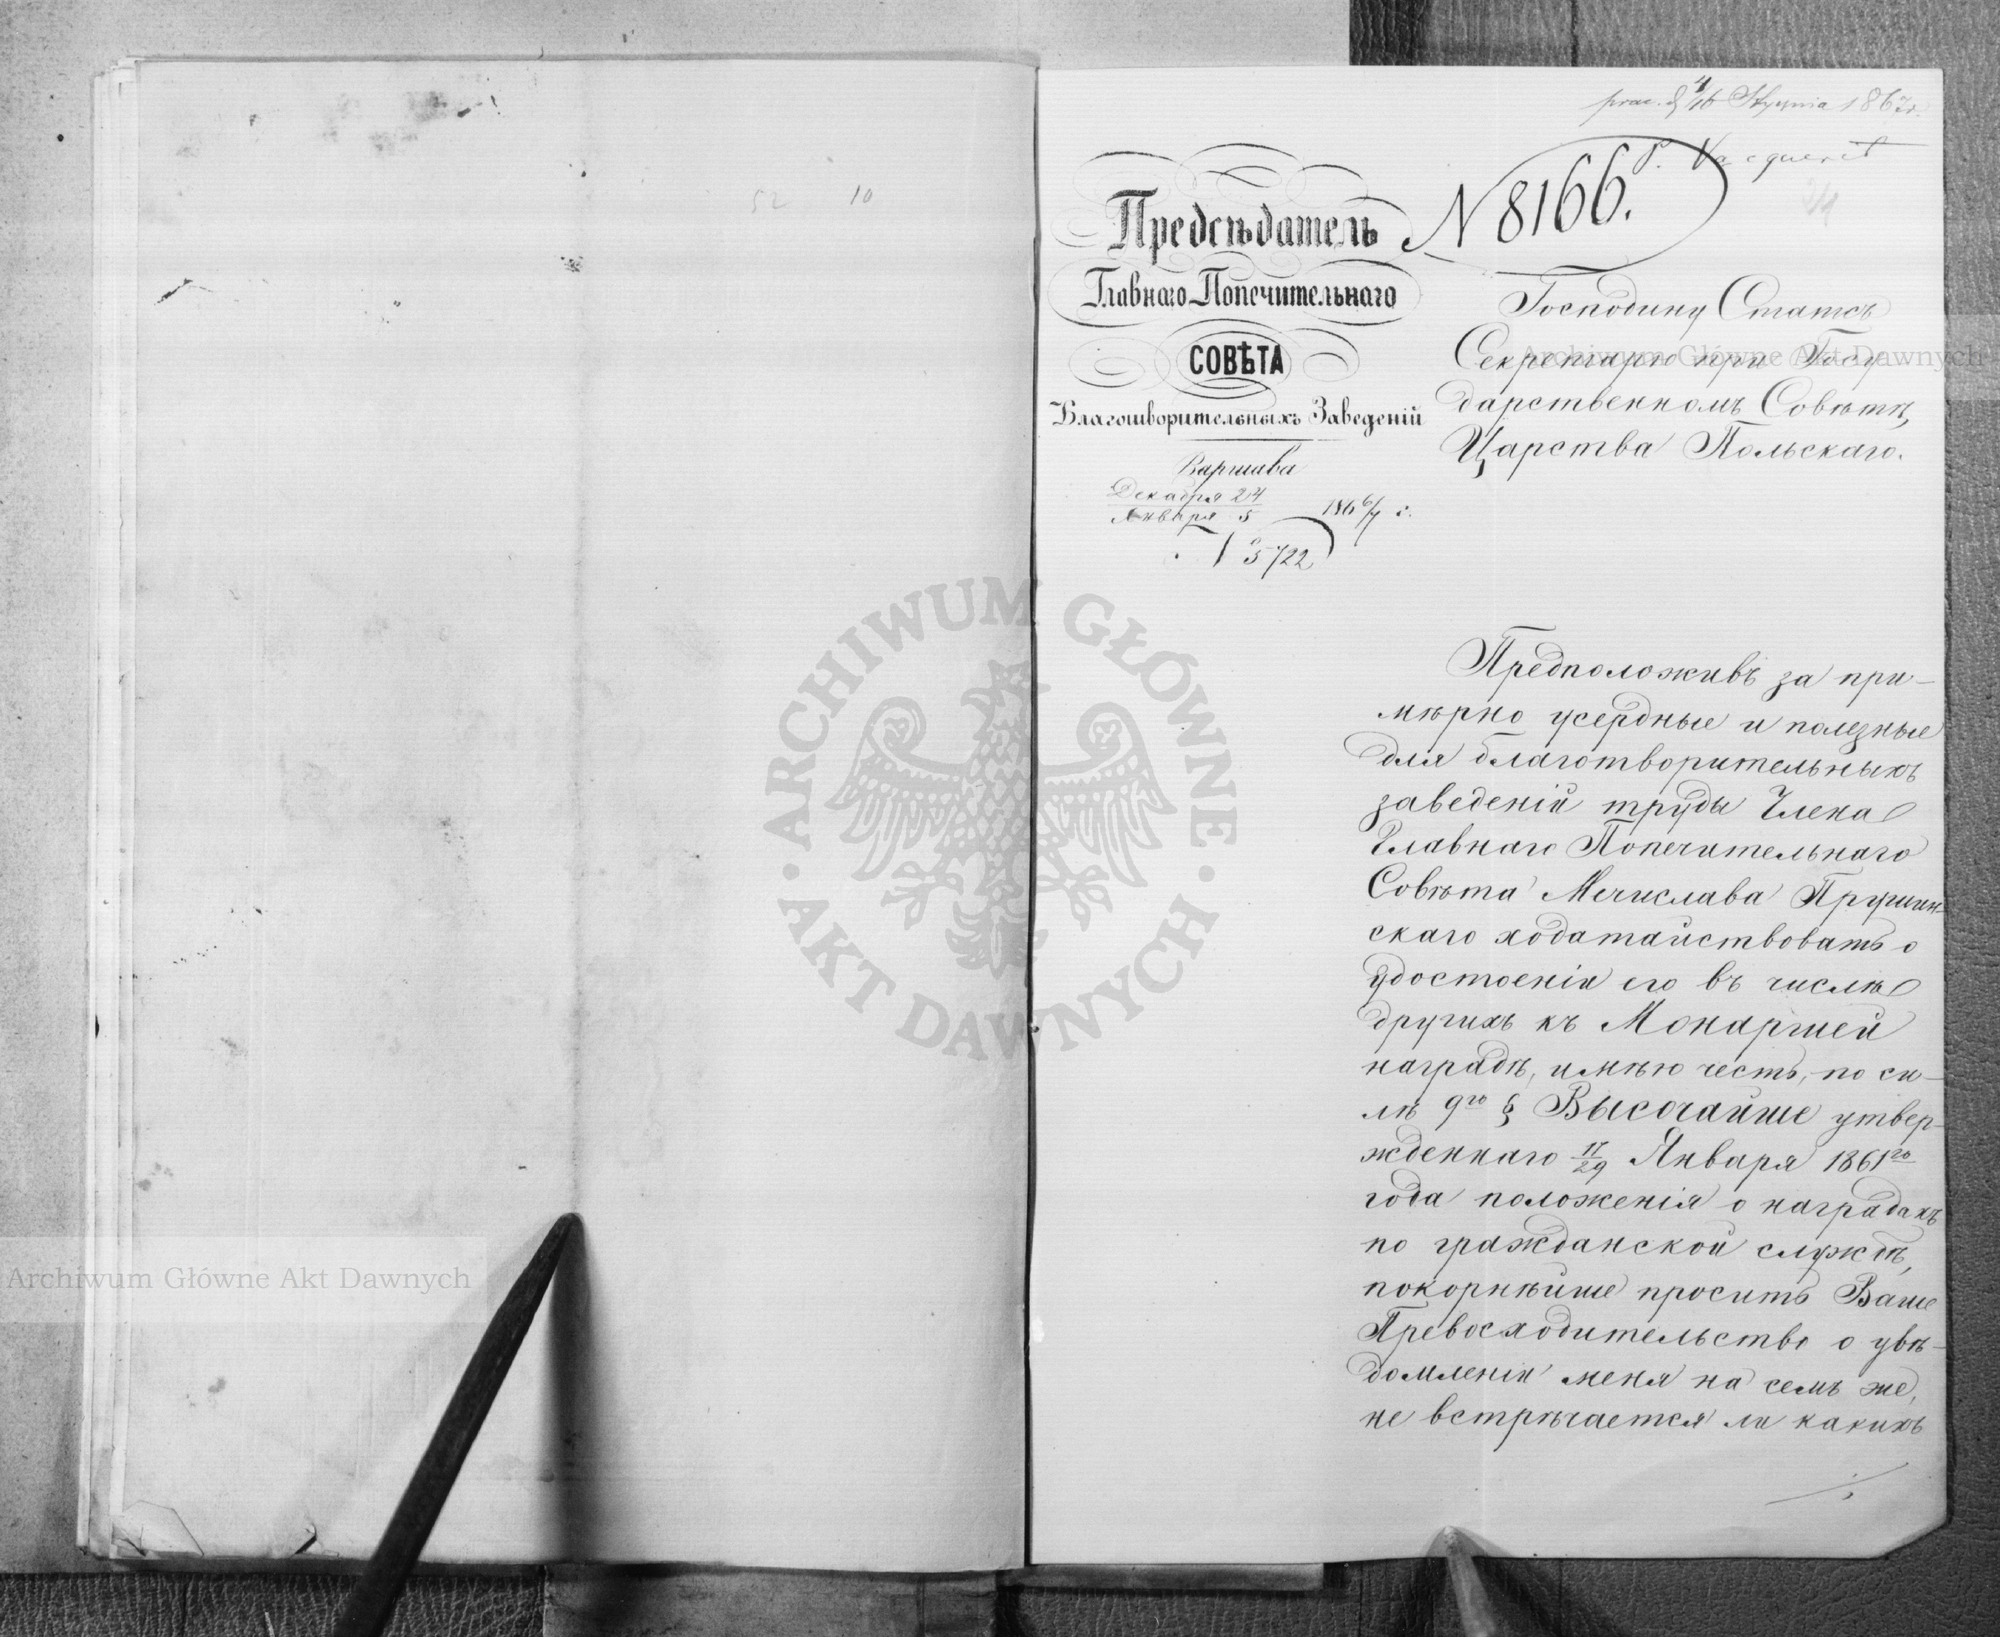 52 10
prac. d. 4/16 Stycznia 1867 r.
P. Vacqueret
N 8166.
Предсѣдатель
Главнаго Попечительнаго
СОВѢТА
Благотворительныхъ Заведеній
Варшава
Декабря 24
Января 5 186 6/7 г.
№ 5722
Господину Статсъ
Секретарю при Госу
дарственномъ Совѣтѣ,
Царства Польскаго.
Предположивъ за при-
мѣрно усердные и полезные
для благотворительныхъ
заведеній труды Члена
Главнаго Попечительнаго
Совѣта Мечислава Прушин-
скаго ходатайствовать о
удостоеніи его въ числѣ
другихъ къ Монаршей
наградѣ, имѣю честь, по си-
лѣ 9го § Высочайше утвер-
жденнаго 17/29 Января 1861го
года положенія о наградахъ
по гражданской службѣ,
покорнѣйше просить Ваше
Превосходительство о увѣ-
домленіи меня на семъ же,
не встрѣчается ли какихъ
ARCHIWUM GŁÓWNE
AKT DAWNYCH
Archiwum Główne Akt Dawnych
Archiwum Główne Akt Dawnych